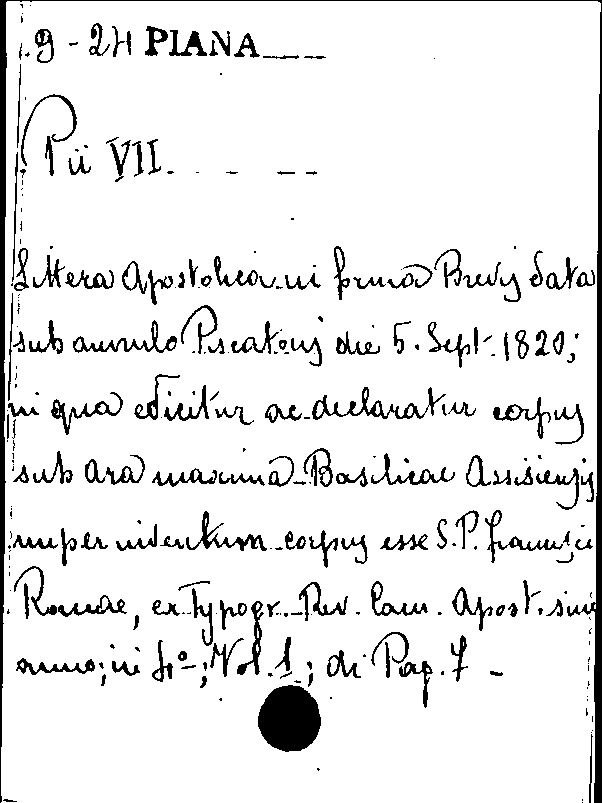 9-24 PIANA
Pii VII.
Littera Apostolica in forma Brevis data
sub annulo Piscatoris die 5. Sept. 1820;
in qua edicitur ac declaratur corpus
sub ara maxima Basilicae Assisiensis
nuper inventum corpus esse S.P. Francisci
Romae, ex Typogr. Rev. Cam. Apost. sine
anno; in 4º; Vol. 1; di Pag. 7